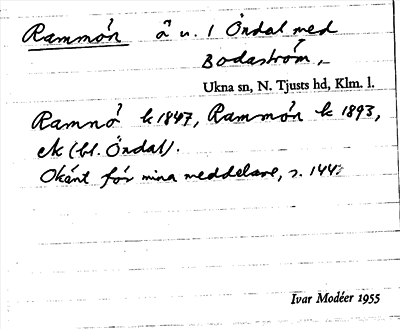 Rammån å u. 1 Öndal med
Bodaström,
Ukna sn, N. Tjusts hd, Klm. l.
Ramnå k 1847, Rammån k 1893,
ek (bl. Öndal).
Okänt för mina meddelare, s. 144
Ivar Modéer 1955